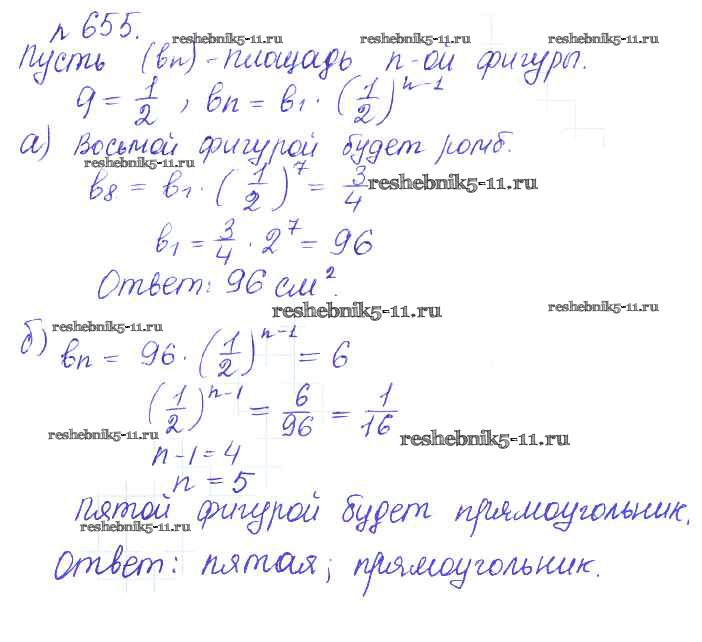 n 655.
reshebnik5-11.ru reshebnik5-11.ru reshebnik5-11.ru
Пусть (bn) - площадь n-ой фигуры.
q = 1/2, bn = b1 · (1/2)^n-1
а) Восьмой фигурой будет ромб.
reshebnik5-11.ru
b8 = b1 · (1/2)^7 = 3/4
reshebnik5-11.ru
b1 = 3/4 · 2^7 = 96
Ответ: 96 см².
reshebnik5-11.ru reshebnik5-11.ru
reshebnik5-11.ru
б) bn = 96 · (1/2)^n-1 = 6
(1/2)^n-1 = 6/96 = 1/16
reshebnik5-11.ru reshebnik5-11.ru
n-1 = 4
n = 5
Пятой фигурой будет прямоугольник.
reshebnik5-11.ru
Ответ: пятая; прямоугольник.